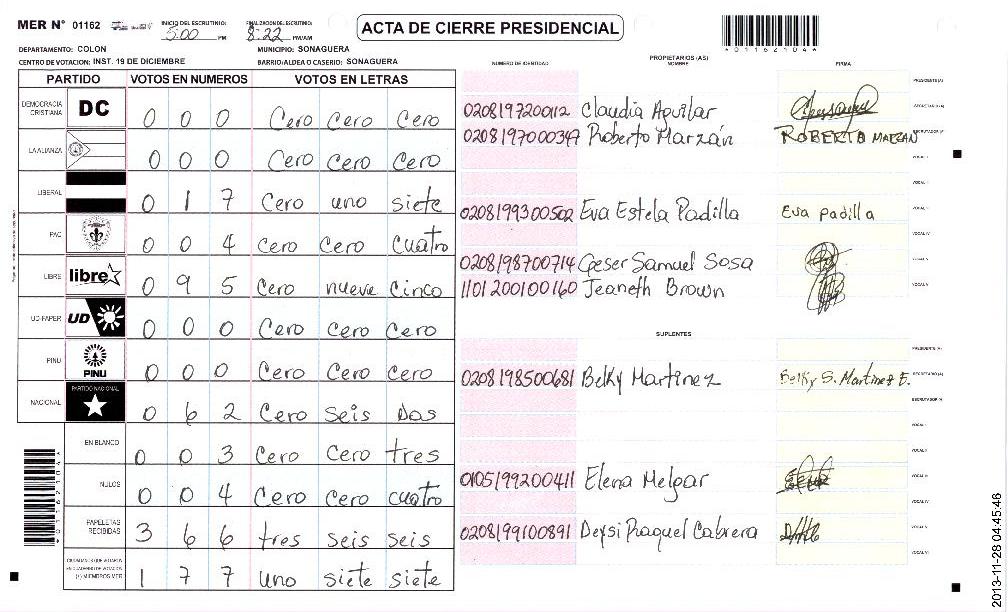 MER N° 01162 INICIO DEL ESCRUTINIO: 5:00 PM FINALIZACION DEL ESCRUTINIO: 8:22 PM/AM ACTA DE CIERRE PRESIDENCIAL
*01162104*
DEPARTAMENTO: COLON MUNICIPIO: SONAGUERA
CENTRO DE VOTACION: INST. 19 DE DICIEMBRE BARRIO/ALDEA O CASERIO: SONAGUERA
PARTIDO VOTOS EN NUMEROS VOTOS EN LETRAS
DEMOCRACIA CRISTIANA DC 0 0 0 Cero Cero Cero
LA ALIANZA 0 0 0 Cero Cero Cero
LIBERAL 0 1 7 Cero uno siete
PAC 0 0 4 Cero Cero cuatro
LIBRE libre 0 9 5 Cero nueve Cinco
UD-FAPER UD 0 0 0 Cero Cero Cero
PINU PINU 0 0 0 Cero Cero Cero
NACIONAL PARTIDO NACIONAL 0 6 2 Cero Seis Dos
EN BLANCO 0 0 3 Cero Cero tres
NULOS 0 0 4 Cero Cero cuatro
PAPELETAS RECIBIDAS 3 6 6 tres seis seis
CIUDADANOS QUE VOTARON EN CUADERNO DE VOTACION (+) MIEMBROS MER 1 7 7 uno siete siete
*01162104*
NUMERO DE IDENTIDAD PROPIETARIOS (AS) NOMBRE FIRMA
PRESIDENTE (A)
0208197200112 Claudia Aguilar SECRETARIO (A)
0208197000347 Roberto Marzán ROBERTO MARZAN ESCRUTADOR (A)
VOCAL I
VOCAL II
0208199300502 Eva Estela Padilla Eva padilla VOCAL III
VOCAL IV
0208198700714 Geser Samuel Sosa
1101200100160 Jeaneth Brown VOCAL V
SUPLENTES
PRESIDENTE (A)
0208198500681 Belky Martinez Belky S. Martinez E. SECRETARIO (A)
ESCRUTADOR (A)
VOCAL I
VOCAL II
0105199200411 Elena Melgar VOCAL III
VOCAL IV
0208199100891 Deysi Raquel Cabrera VOCAL V
VOCAL VI
2013-11-28 04:45:46